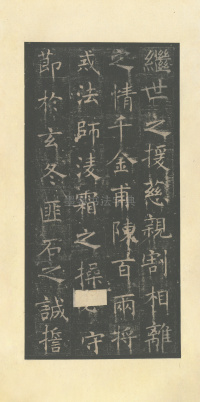 繼世之援慈親割相離
之情千金甫陳百兩將
戒法師淩霜之操守
節於玄冬匪石之誠擔